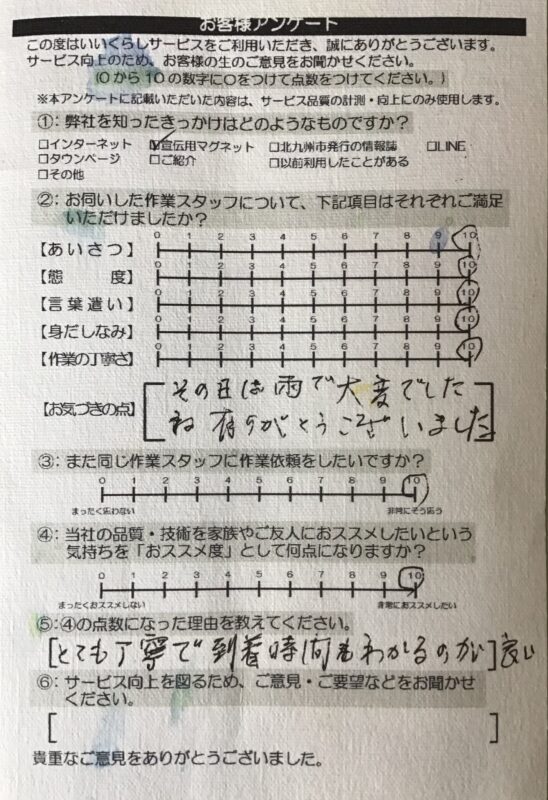 お客様アンケート
この度はいいくらしサービスをご利用いただき、誠にありがとうございます。
サービス向上のため、お客様の生のご意見をお聞かせください。
(0から10の数字に○をつけて点数をつけてください。)
※本アンケートに記載いただいた内容は、サービス品質の計測・向上にのみ使用します。
①:弊社を知ったきっかけはどのようなものですか?
□インターネット ☑宣伝用マグネット □北九州市発行の情報誌 □LINE
□タウンページ □ご紹介 □以前利用したことがある
□その他
②:お伺いした作業スタッフについて、下記項目はそれぞれご満足
いただけましたか?
【あいさつ】 0 1 2 3 4 5 6 7 8 9 10
【態度】 0 1 2 3 4 5 6 7 8 9 10
【言葉遣い】 0 1 2 3 4 5 6 7 8 9 10
【身だしなみ】 0 1 2 3 4 5 6 7 8 9 10
【作業の丁寧さ】 0 1 2 3 4 5 6 7 8 9 10
【お気づきの点】
その日は雨で大変でした
ね 有りがとうございました
③:また同じ作業スタッフに作業依頼をしたいですか?
0 1 2 3 4 5 6 7 8 9 10
まったく思わない 非常にそう思う
④:当社の品質・技術を家族やご友人におススメしたいという
気持ちを「おススメ度」として何点になりますか?
0 1 2 3 4 5 6 7 8 9 10
まったくおススメしない 非常におススメしたい
⑤:④の点数になった理由を教えてください。
[とても丁寧で到着時間もわかるのが]良い
⑥:サービス向上を図るため、ご意見・ご要望などをお聞かせ
ください。
[ ]
貴重なご意見をありがとうございました。